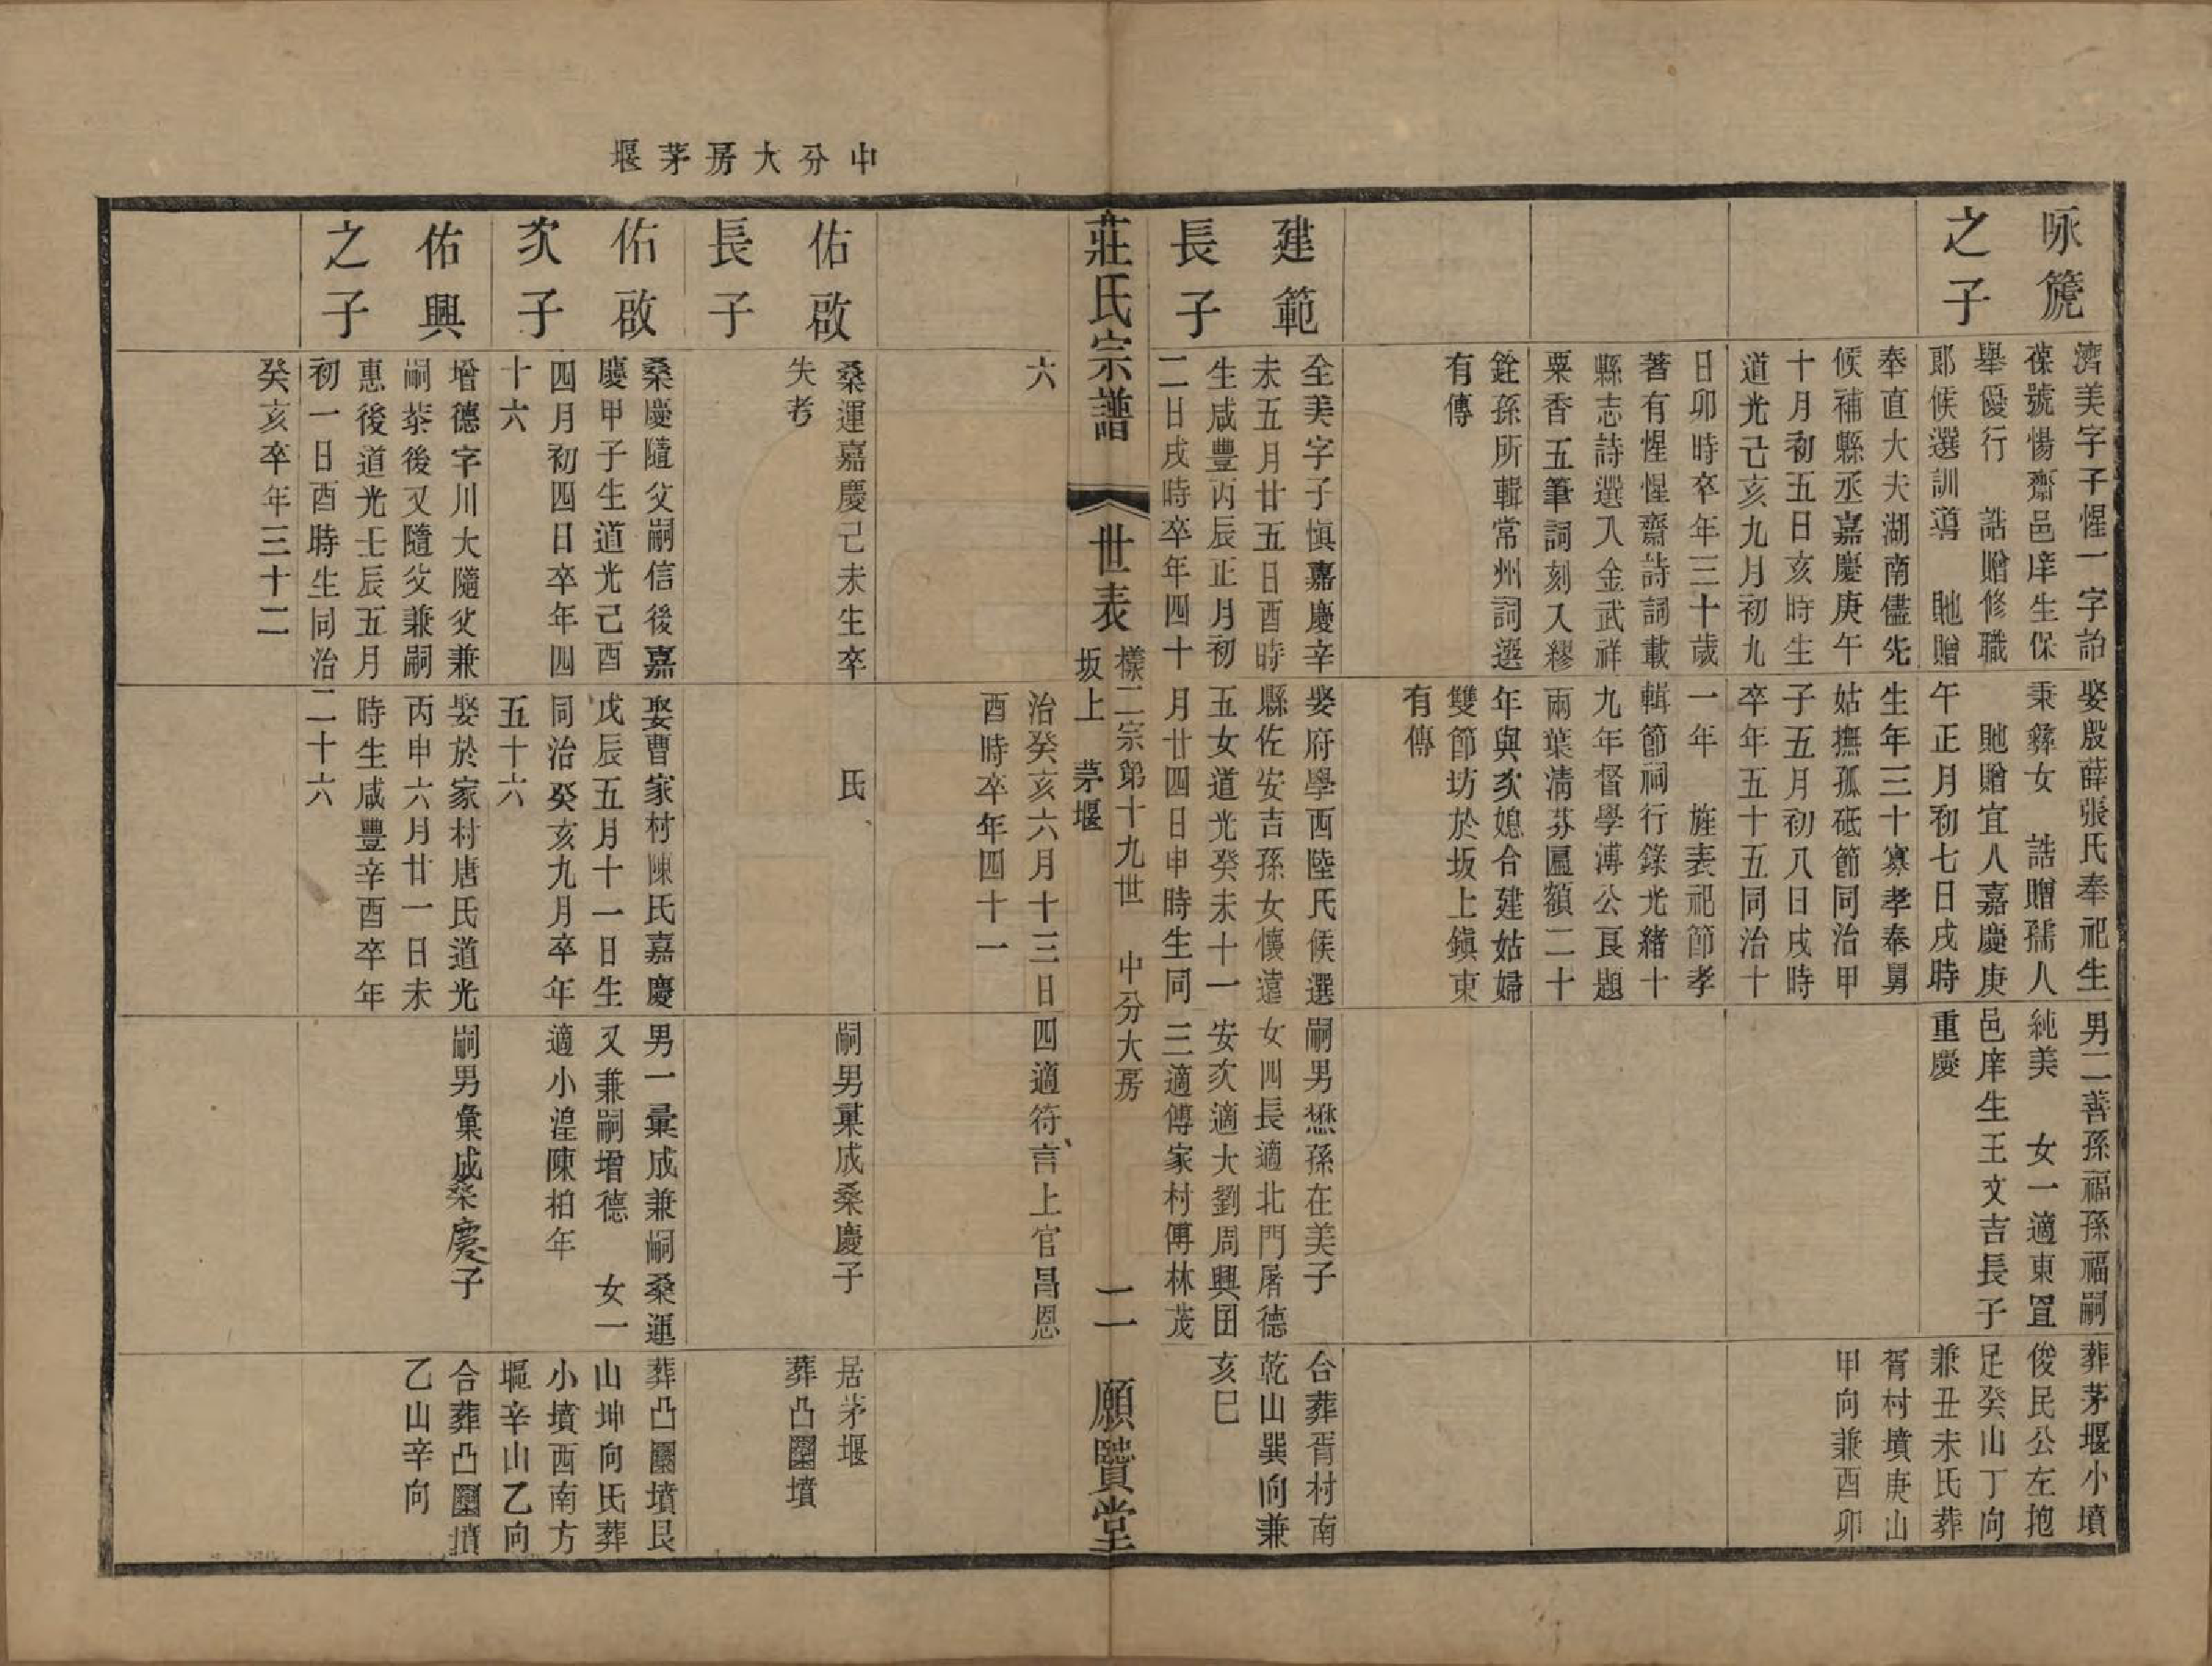 中分大房茅堰
咏箎
之子
濟美字子惺一字詒
葆號惕齋邑庠生保
舉優行 誥贈修職
郎候選訓導 貤贈
奉直大夫湖南儘先
候補縣丞嘉慶庚午
十月初五日亥時生
道光己亥九月初九
日卯時卒年三十歲
著有惺惺齋詩詞載
縣志詩選入金武祥
粟香五筆詞刻入繆
銓孫所輯常州詞選
有傳
娶殷薛張氏奉祀生
秉彝女 誥贈孺人
貤贈宜人嘉慶庚
午正月初七日戌時
生年三十寡孝奉舅
姑撫孤砥節同治甲
子五月初八日戌時
卒年五十五同治十
一年 旌表祀節孝
輯節祠行錄光緒十
九年督學溥公良題
兩葉清芬匾額二十
年與次媳合建姑婦
雙節坊於坂上鎮東
有傳
男二善孫福孫福嗣
純美 女一適東罝
邑庠生王文吉長子
重慶
葬茅堰小墳
俊民公左抱
足癸山丁向
兼丑未氏葬
胥村墳庚山
甲向兼酉卯
建範
長子
全美字子愼嘉慶辛
未五月廿五日酉時
生咸豐丙辰正月初
二日戌時卒年四十
六
娶府學西陸氏候選
縣佐安吉孫女懷遠
五女道光癸未十一
月廿四日申時生同
治癸亥六月十三日
酉時卒年四十一
嗣男懋孫在美子
女四長適北門屠德
安次適大劉周興囝
三適傅家村傅林茂
四適符言上官昌恩
合葬胥村南
乾山巽向兼
亥巳
莊氏宗譜
世表
樣二宗第十九世 中分大房
坂上 茅堰
二
願賢堂
佑啟
長子
桑運嘉慶己未生卒
失考
氏
嗣男菓成桑慶子
居茅堰
葬凸墳
佑啟
次子
桑慶隨父嗣信後嘉
慶甲子生道光己酉
四月初四日卒年四
十六
娶曹家村陳氏嘉慶
戊辰五月十一日生
同治癸亥九月卒年
五十六
男一彚成兼嗣桑運
又兼嗣增德 女一
適小湟陳柏年
葬凸墳艮
山坤向氏葬
小墳西南方
堰辛山乙向
佑興
之子
增德字川大隨父兼
嗣棻後又隨父兼嗣
惠後道光壬辰五月
初一日酉時生同治
癸亥卒年三十二
娶於家村唐氏道光
丙申六月廿一日未
時生咸豐辛酉卒年
二十六
嗣男彙成桑慶子
合葬凸墳
乙山辛向